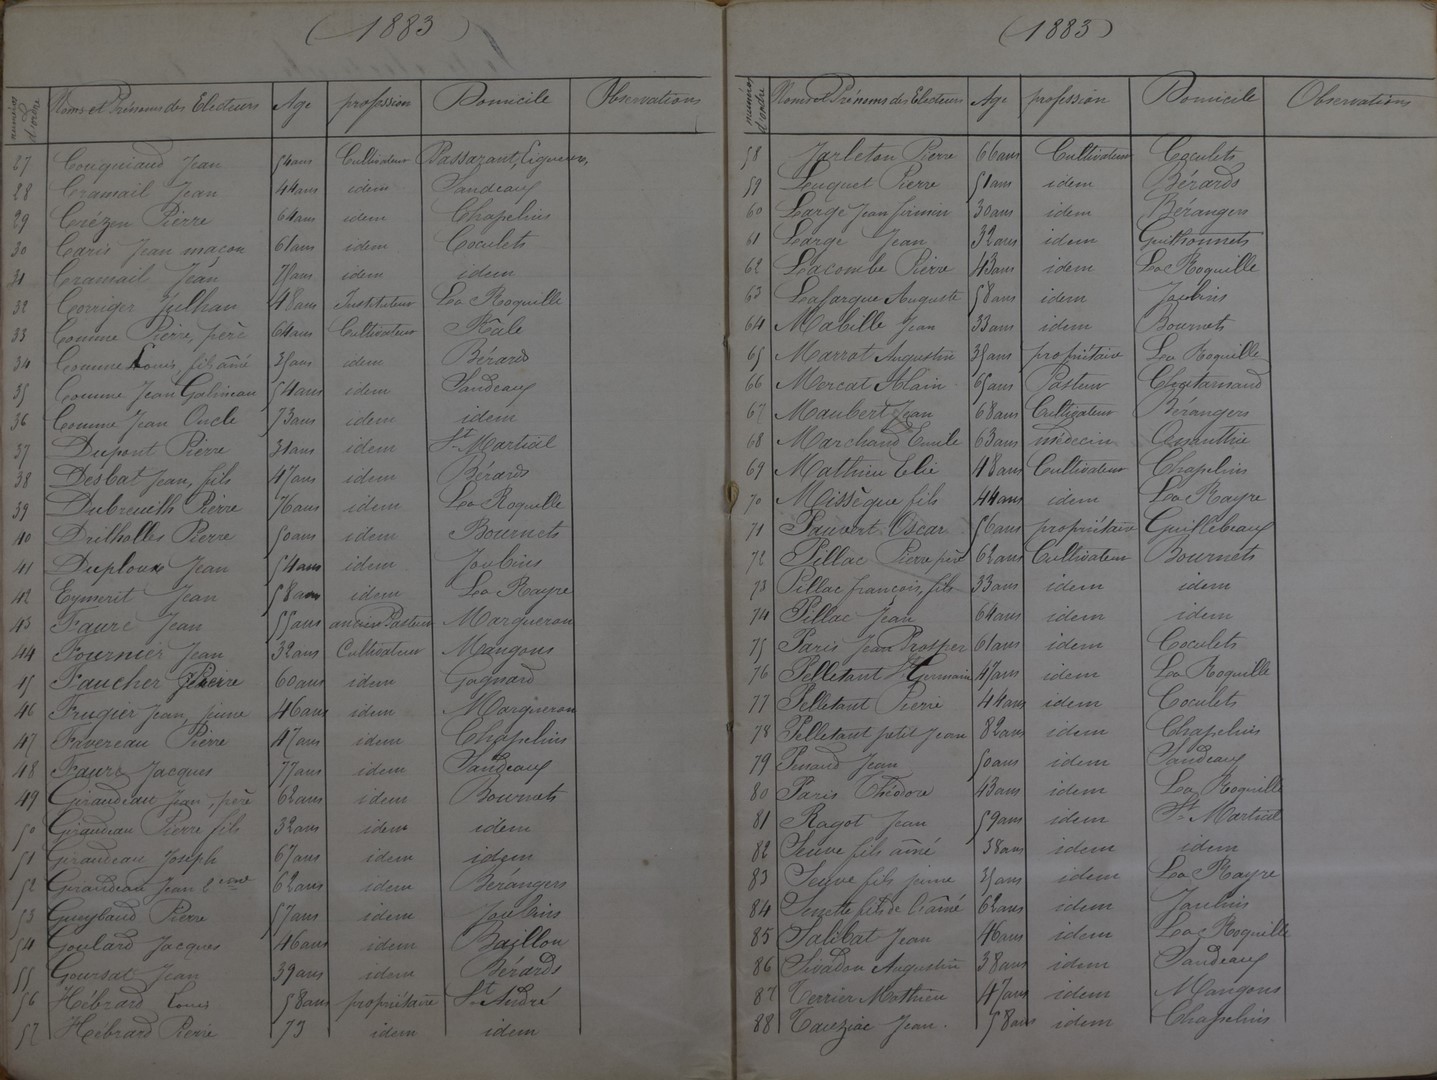 (1883)
numéros d'ordre Noms et Prénoms des Electeurs Age profession Domicile Observations
27 Couquiaud Jean 54 ans Cultivateur Passazant,
28 Cramail Jean 44 ans idem Sandeaux
29 Crézen Pierre 64 ans idem Chapelins
30 Caris Jean maçon 61 ans idem Coculets
31 Cramail Jean idem idem
32 Corriger Julhan 48 ans Instituteur La Roquille
33 Comme Pierre, père 64 ans Cultivateur
34 Comme Louis, fils aîné 35 ans idem Bérards
35 Comme Jean Galineau 54 ans idem Sandeaux
36 Comme Jean Oncle 73 ans idem idem
37 Dupont Pierre 31 ans idem St Martial
38 Desbat Jean, fils 47 ans idem Bérards
39 Dubreuilh Pierre 76 ans idem La Roquille
40 Drilholles Pierre 50 ans idem Bournets
41 Duploux Jean 54 ans idem Joubins
42 Eymerit Jean 58 ans idem La Rayre
43 Faure Jean 55 ans ancien Pasteur Margueron
44 Fournier Jean 32 ans Cultivateur Mangons
45 Faucher Pierre 60 ans idem Gagnard
46 Frugier Jean, jeune 46 ans idem Margueron
47 Favereau Pierre 47 ans idem Chapelins
48 Faure Jacques 77 ans idem Sandeaux
49 Giraudeau Jean, père 62 ans idem Bournets
50 Giraudeau Pierre fils 32 ans idem idem
51 Giraudeau Joseph 67 ans idem idem
52 Giraudeau Jean 62 ans idem Bérangers
53 Gueybaud Pierre 57 ans idem Joubins
54 Goulard Jacques 46 ans idem Baillon
55 Goursat Jean 39 ans idem Bérards
56 Hébrard Louis 58 ans propriétaire St André
57 Hébrard Pierre 73 idem idem
(1883)
numéros d'ordre Noms et Prénoms des Electeurs Age profession Domicile Observations
58 Jarleton Pierre 66 ans Cultivateur Coculets
59 Louquet Pierre 51 ans idem Bérards
60 Large Jean firmin 30 ans idem Bérangers
61 Large Jean 32 ans idem Guithonnets
62 Lacombe Pierre 43 ans idem La Roquille
63 Lafargue Auguste 58 ans idem Joubins
64 Mabille Jean 33 ans idem Bournets
65 Marrot Augustin 35 ans propriétaire La Roquille
66 Mercat Alain 65 ans Pasteur
67 Maubert Jean 68 ans Cultivateur Bérangers
68 Marchand Emile 63 ans médecin
69 Mathieu Elie 48 ans Cultivateur Chapelins
70 Missèque fils 44 ans idem La Rayre
71 Pauvert Oscar 56 ans propriétaire Guillebeaux
72 Pillac Pierre père 62 ans Cultivateur Bournets
73 Pillac françois, fils 33 ans idem idem
74 Pillac Jean 64 ans idem idem
75 Paris Jean Prosper 61 ans idem Coculets
76 Pelletant St Germain 47 ans idem La Roquille
77 Pelletant Pierre 44 ans idem Coculets
78 Pelletant petit Jean 82 ans idem Chapelins
79 Penaud Jean 50 ans idem Sandeaux
80 Paris Théodore 43 ans idem La Roquille
81 Ragot Jean 59 ans idem St Martial
82 Seuve fils aîné 38 ans idem idem
83 Seuve fils jeune 35 ans idem La Rayre
84 62 ans idem Joubins
85 Salibat Jean 46 ans idem La Roquille
86 Sivadon Augustin 38 ans idem Sandeaux
87 Terrier Mathieu 47 ans idem Mangons
88 Tauziac Jean 58 ans idem Chapelins